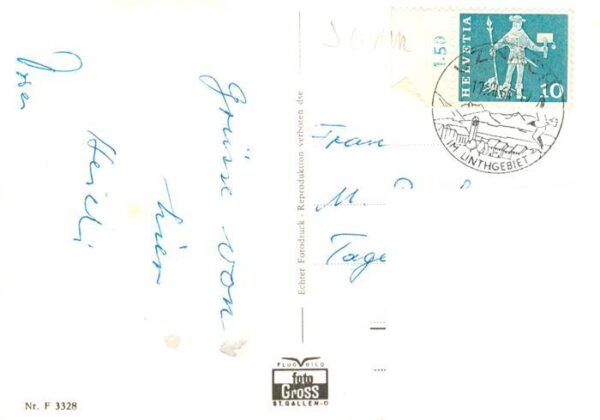 Grüsse von
hier
Heidi
Frau
M.
Tage
HELVETIA
10
1.50
IM LINTHGEBIET
Echter Fotodruck - Reproduktion verboten dse
FLUGBILD
foto
Gross
ST. GALLEN-O
Nr. F 3328